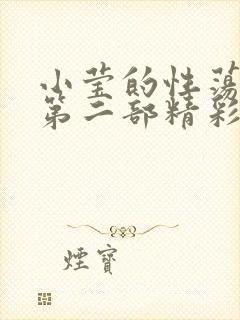 小莹的性荡
第二部精彩
煙寶